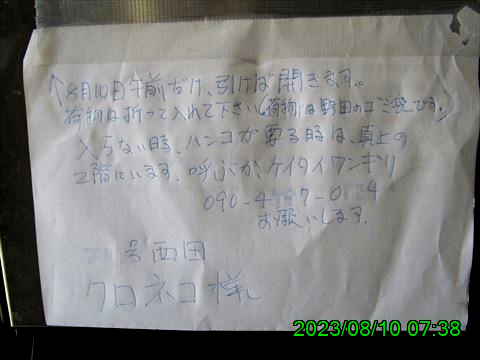 ↑8月10日午前だけ、引けば開きます。
荷物は折って入れて下さい(荷物は野田のゴミ袋です。)
入らない時、ハンコが要る時は、真上の
2階にいます。呼ぶか、ケイタイワンギリ
090-4 7-0 4
お願いします。
号西田
クロネコ様
2023/08/10 07:38